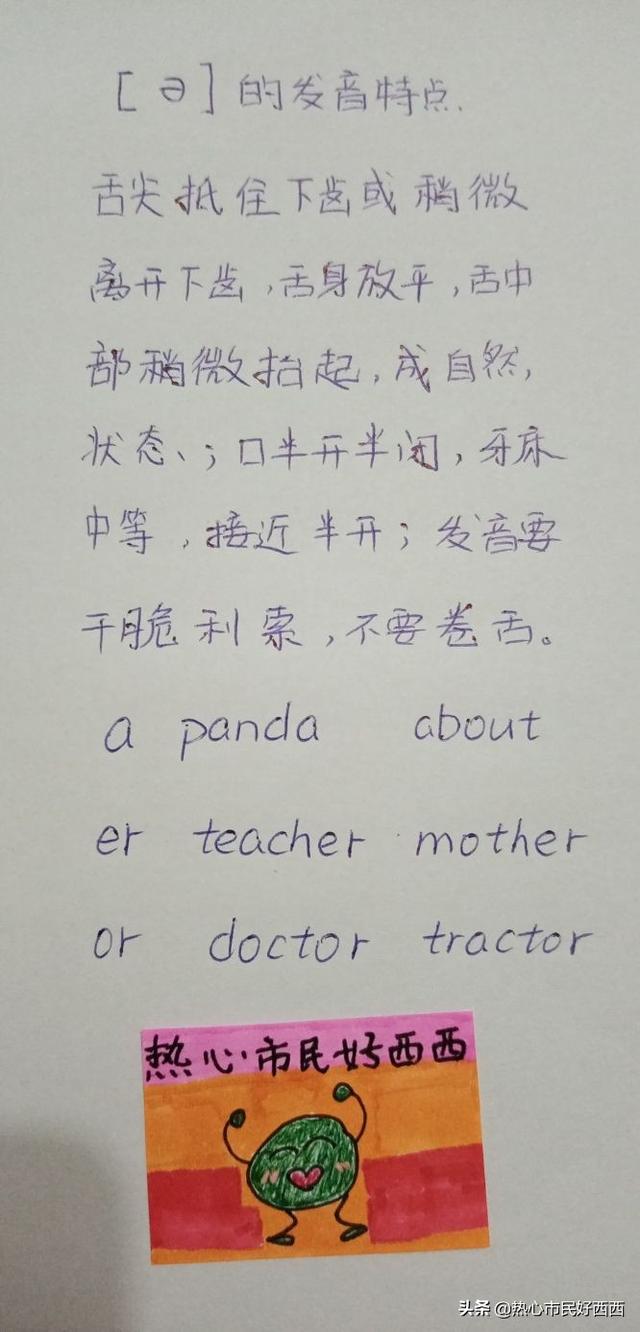 [ə]的发音特点.
舌尖抵住下齿或稍微
离开下齿,舌身放平,舌中
部稍微抬起,成自然,
状态、;口半开半闭,牙床
中等,接近半开;发音要
干脆利索,不要卷舌。
a panda about
er teacher mother
or doctor tractor
热心市民好西西
头条 @热心市民好西西